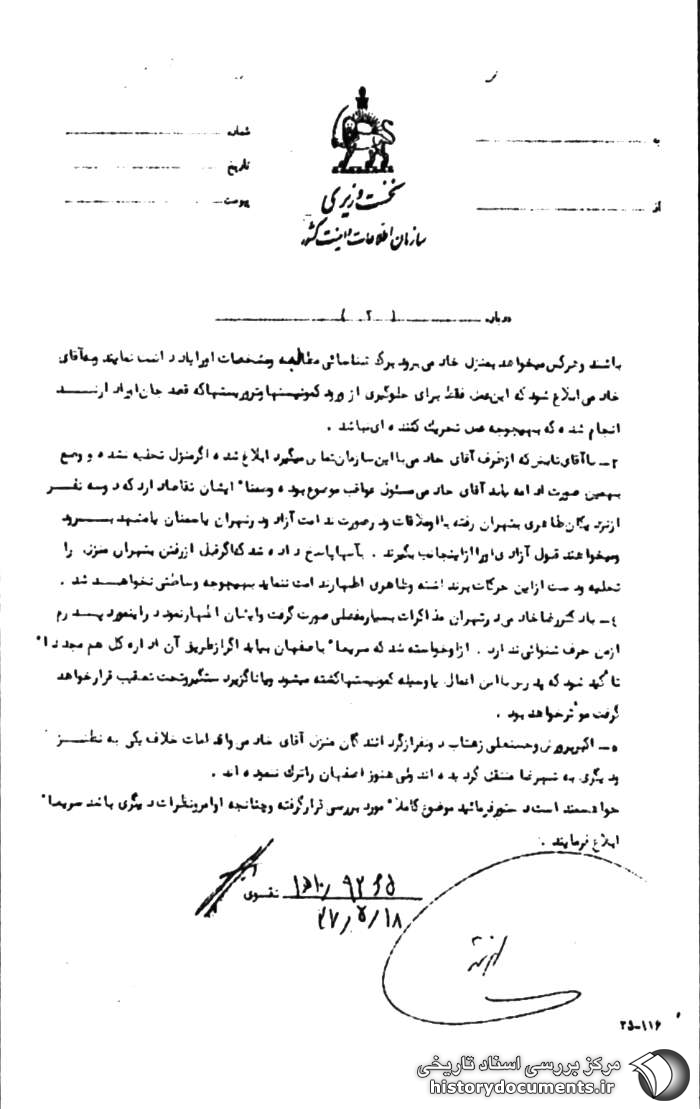 شماره
به
تاریخ
پیوست
از
نخست وزیری
سازمان اطلاعات و امنیت کشور
درباره ( ۲ )
باشند و هرکس میخواهد بمنزل خادمی برود برگ شناسائی مطالبه ومشخصات اورا یاد داشت نمایند وبه آقای
خادمی ابلاغ شود که این عمل فقط برای جلوگیری از ورود کمونیستها وتروریستها که قصد جان اورا دارند
انجام شده که بهیچوجه عمل تحریک کننده ای نمیباشد .
۳ـ با آقای که ازطرف آقای خادمی با این سازمان تماس میگیرد ابلاغ شده اگر منزل تخلیه نشده و وضع
بهمین صورت ادامه یابد آقای خادمی مسئول عواقب موضوع بوده وضمنا" ایشان تقاضا دارد که دوسه نفر
ازنزدیکان طاهری بتهران رفته با او ملاقات ودرصورت ندامت آزاد ودرتهران یا سمنان یا مشهد بــرود
ومیخواهند قول آزادی اورا ازاینجانب بگیرند . بآنها پاسخ داده شد که اگر قبل ازرفتن بتهران منزل را
تخلیه ودست ازاین حرکات برنداشته وطاهری اظهار ندامت ننماید بهیچوجه وساطتی نخواهد شد .
٤ـ با دکتر رضا خادمی درتهران مذاکرات بسیار مفصلی صورت گرفت وایشان اظهار نمود دراینمورد پدرم
ازمن حرف شنوائی ندارد . ازاوخواسته شد که سریعا" باصفهان بیاید اگر ازطریق آن اداره کل هم مجددا"
تاکید شود که پدرش با این اعمال یا وسیله کمونیستها کشته میشود ویا ناگزیر دستگیر وتحت تعقیب قرارخواهد
گرفت موثر خواهد بود .
۵ـ اکبر پرورش وحسنعلی زهتاب دونفر ازگردانندگان منزل آقای خادمی واقدامات خلاف یکی به نطنــز
ودیگری به شهرضا منتقل گردیده اند ولی هنوز اصفهان را ترک ننموده اند .
خواهشمند است دستور فرمائید موضوع کاملا" مورد بررسی قرارگرفته وچنانچه اوامر ونظرات دیگری باشد سریعا"
ابلاغ فرمایند .
تقوی
۳۷/۵/۱۸
۳۵-۱۱۶
مرکز بررسی اسناد تاریخی
historydocuments.ir